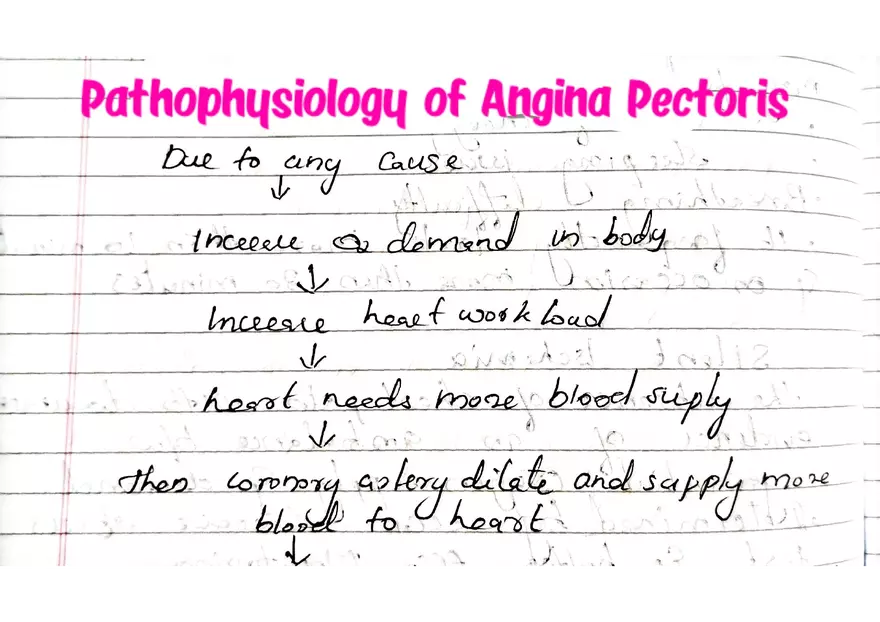 Pathophysiology of Angina Pectoris
Due to any cause
↓
Increase O2 demand in body
↓
Increase heart work load
↓
heart needs more blood suply
↓
then coronory artery dilate and supply more
blood to heart
↓